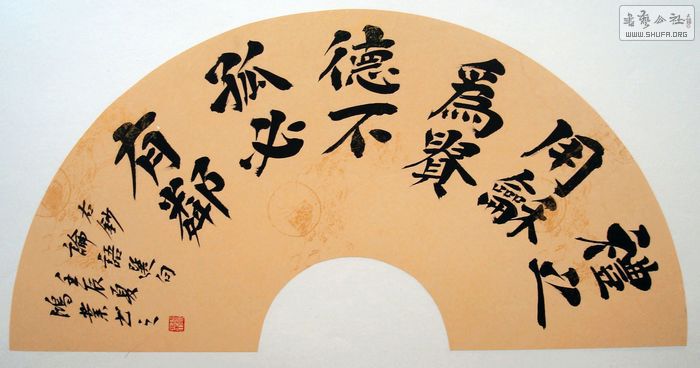 禮之
用龢
爲貴
德不
孤必
有鄰
右鈔
論語選句
壬辰夏
鴻業书之
書藝公社
WWW.SHUFA.ORG